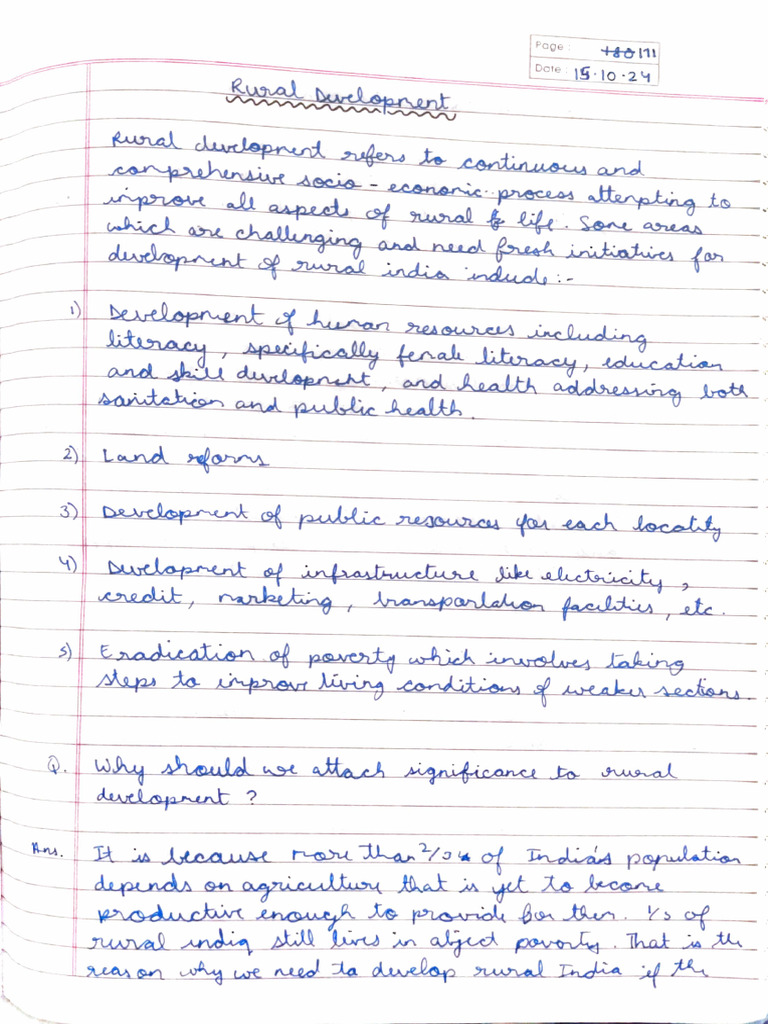 Page: 180 171
Date: 15.10.24
Rural Development
Rural development refers to continuous and
comprehensive socio - economic process attempting to
improve all aspects of rural life. Some areas
which are challenging and need fresh initiatives for
development of rural india include :-
1) Development of human resources including
literacy, specifically female literacy, education
and skill development, and health addressing both
sanitation and public health.
2) Land reforms
3) Development of public resources for each locality
4) Development of infrastructure like electricity,
credit, marketing, transportation facilities, etc.
5) Eradication of poverty which involves taking
steps to improve living conditions of weaker sections.
Q. Why should we attach significance to rural
development ?
Ans. It is because more than 2/3 of India's population
depends on agriculture that is yet to become
productive enough to provide for them. 1/3 of
rural india still lives in abject poverty. That is the
reason why we need to develop rural India if the